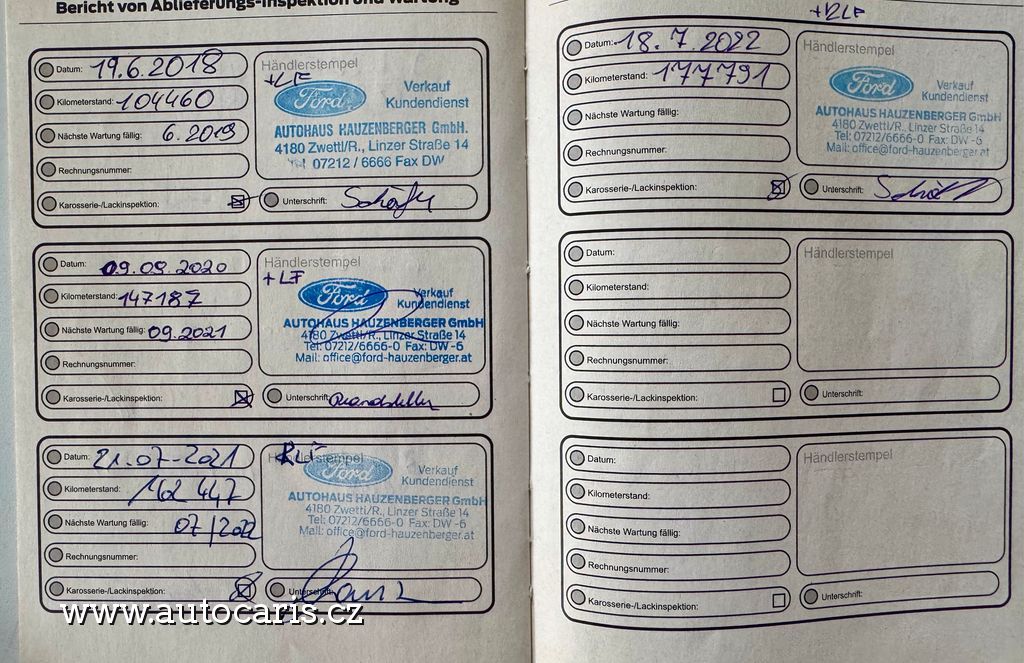 Bericht von Ablieferungs-Inspektion und Wartung
Datum: 19.6.2018
Kilometerstand: 104460
Nächste Wartung fällig: 6.2019
Rechnungsnummer:
Karosserie-/Lackinspektion:
Händlerstempel
+LF
Ford
Verkauf
Kundendienst
AUTOHAUS HAUZENBERGER GmbH.
4180 Zwettl/R., Linzer Straße 14
Tel 07212 / 6666 Fax DW
Unterschrift:
Datum: 09.09.2020
Kilometerstand: 147187
Nächste Wartung fällig: 09.2021
Rechnungsnummer:
Karosserie-/Lackinspektion:
Händlerstempel
+LF
Ford
Verkauf
Kundendienst
AUTOHAUS HAUZENBERGER GmbH
4180 Zwettl/R., Linzer Straße 14
Tel: 07212/6666-0 Fax: DW -6
Mail: office@ford-hauzenberger.at
Unterschrift:
Datum: 21.07-2021
Kilometerstand: 162 447
Nächste Wartung fällig: 07/2022
Rechnungsnummer:
Karosserie-/Lackinspektion:
Händlerstempel
Ford
Verkauf
Kundendienst
AUTOHAUS HAUZENBERGER GmbH
4180 Zwettl/R., Linzer Straße 14
Tel: 07212/6666-0 Fax: DW -6
Mail: office@ford-hauzenberger.at
Unterschrift:
www.autocaris.cz
+RLF
Datum: 18.7.2022
Kilometerstand: 177791
Nächste Wartung fällig:
Rechnungsnummer:
Karosserie-/Lackinspektion:
Händlerstempel
Ford
Verkauf
Kundendienst
AUTOHAUS HAUZENBERGER GmbH
4180 Zwettl/R., Linzer Straße 14
Tel: 07212/6666-0 Fax: DW -6
Mail: office@ford-hauzenberger.at
Unterschrift:
Datum:
Kilometerstand:
Nächste Wartung fällig:
Rechnungsnummer:
Karosserie-/Lackinspektion:
Händlerstempel
Unterschrift:
Datum:
Kilometerstand:
Nächste Wartung fällig:
Rechnungsnummer:
Karosserie-/Lackinspektion:
Händlerstempel
Unterschrift: